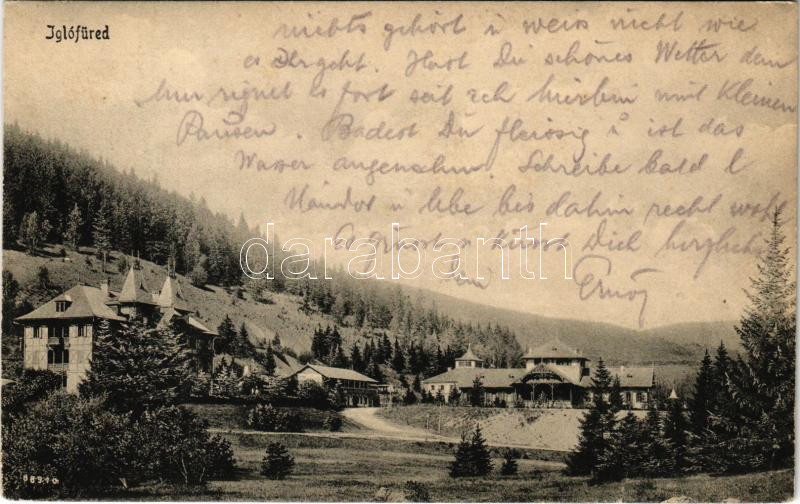 Iglófüred
nichts gehört u weiss nicht wie
es Dir geht. Hast Du schönes Wetter denn
hier regnet es fort seit ich hierbin mit Kleinen
Pausen. Badest Du fleissig u ist das
Wasser angenehm. Schreibe bald l
Nándor u lebe bis dahin recht wohl
Es grüsst u küsst Dich herzlichst
Ernő
darabanth.com